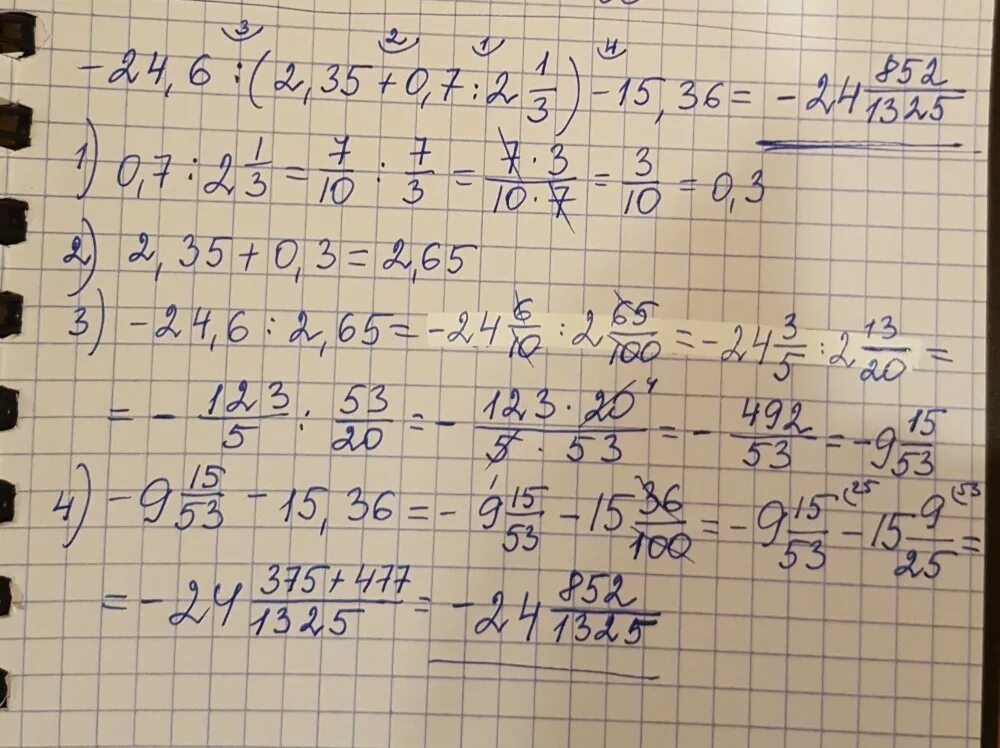 3 2 1 4
-24,6 : (2,35 + 0,7 : 2 1/3) - 15,36 = -24 852/1325
1) 0,7 : 2 1/3 = 7/10 : 7/3 = 7·3/10·7 = 3/10 = 0,3
2) 2,35 + 0,3 = 2,65
3) -24,6 : 2,65 = -24 6/10 : 2 65/100 = -24 3/5 : 2 13/20 =
= - 123/5 : 53/20 = - 123·20 4/5·53 = - 492/53 = -9 15/53
4) -9 15/53 - 15,36 = -9 15/53 - 15 36/100 = -9 15/53 (25 - 15 9/25 (53 =
= -24 375+477/1325 = -24 852/1325